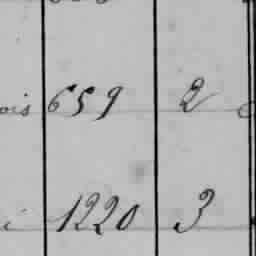 ois 659 2
1220 3